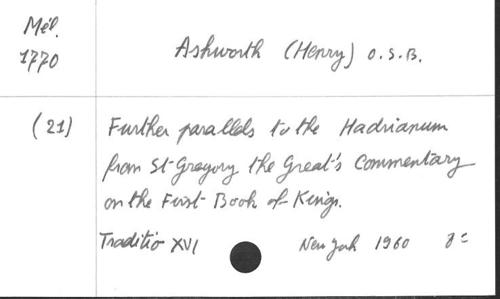 Mél.
1770
Ashworth (Henry) O.S.B.
(21)
Further parallels to the Hadrianum
from St Gregory the Great's Commentary
on the First Book of Kings.
Traditio XVI New York 1960 8°